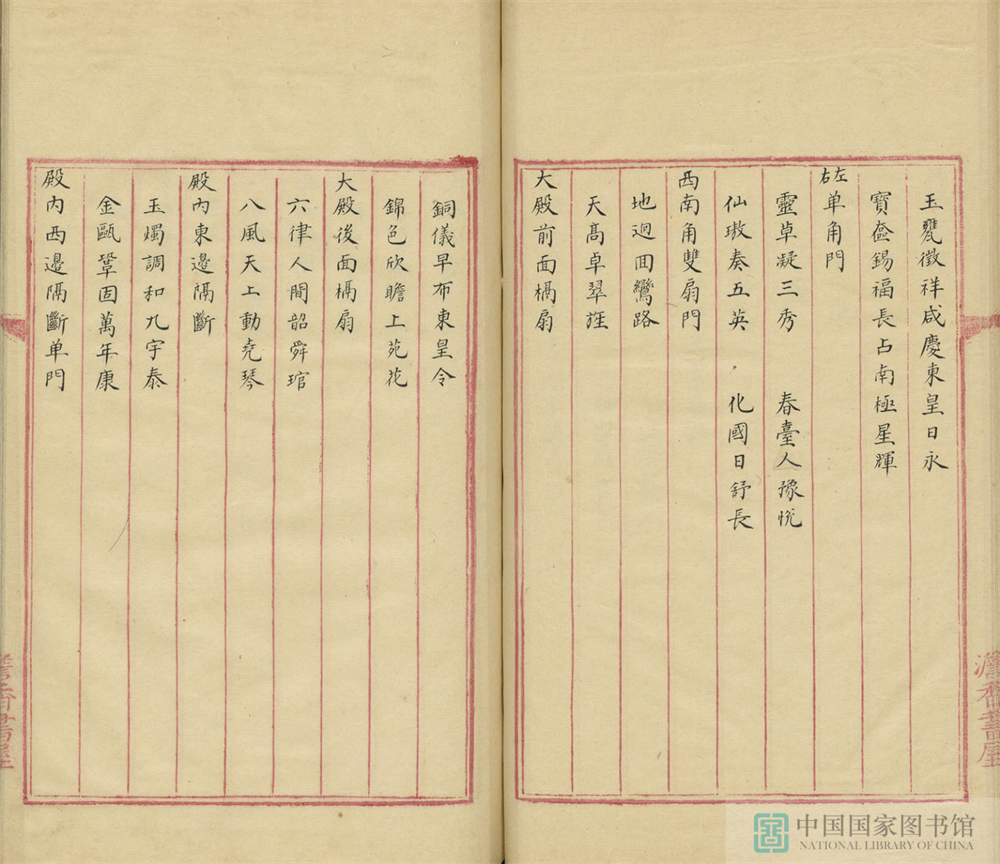 玉甕徵祥咸慶東皇日永
寶盒錫福長占南極星輝
左右单角門
靈草凝三秀 春臺人豫悅
仙璈奏五英 化國日舒長
西南角雙扇門
地迴田鸞路
天髙卓翠旌
大殿前面槅扇
銅儀早布東皇令
錦色欣瞻上苑花
大殿後面槅扇
六律人間韶舜琯
八風天上動堯琴
殿內東邊隔斷
玉燭調和九宇泰
金甌鞏固萬年康
殿內西邊隔斷单門
澹香書屋
中国国家图书馆
NATIONAL LIBRARY OF CHINA